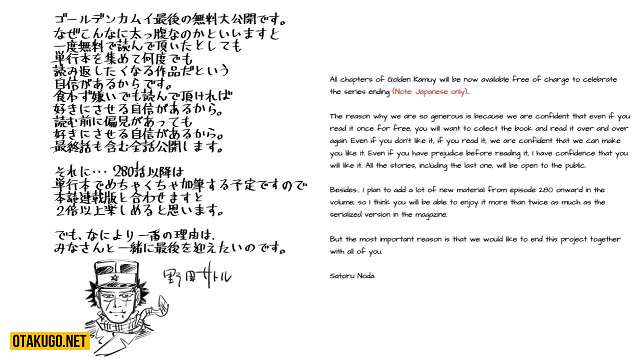 ゴールデンカムイ最後の無料大公開です。
なぜこんなに太っ腹なのかといいますと
一度無料で読んで頂いたとしても
単行本を集めて何度でも
読み返したくなる作品だという
自信があるからです。
食わず嫌いでも読んで頂ければ
好きにさせる自信があるから。
読む前に偏見があっても
好きにさせる自信があるから。
最終話も含む全話公開します。
それに…280話以降は
単行本でめちゃくちゃ加筆する予定ですので
本誌連載版と合わせますと
2倍以上楽しめると思います。
でも、なにより一番の理由は、
みなさんと一緒に最後を迎えたいのです。
野田サトル
OTAKUGO.NET
All chapters of Golden Kamuy will be now available free of charge to celebrate
the series ending (Note: Japanese only).
The reason why we are so generous is because we are confident that even if you
read it once for free, you will want to collect the book and read it over and over
again. Even if you don't like it, if you read it, we are confident that we can make
you like it. Even if you have prejudice before reading it, I have confidence that you
will like it. All the stories, including the last one, will be open to the public.
Besides, I plan to add a lot of new material from episode 280 onward in the
volume, so I think you will be able to enjoy it more than twice as much as the
serialized version in the magazine.
But the most important reason is that we would like to end this project together
with all of you.
Satoru Noda